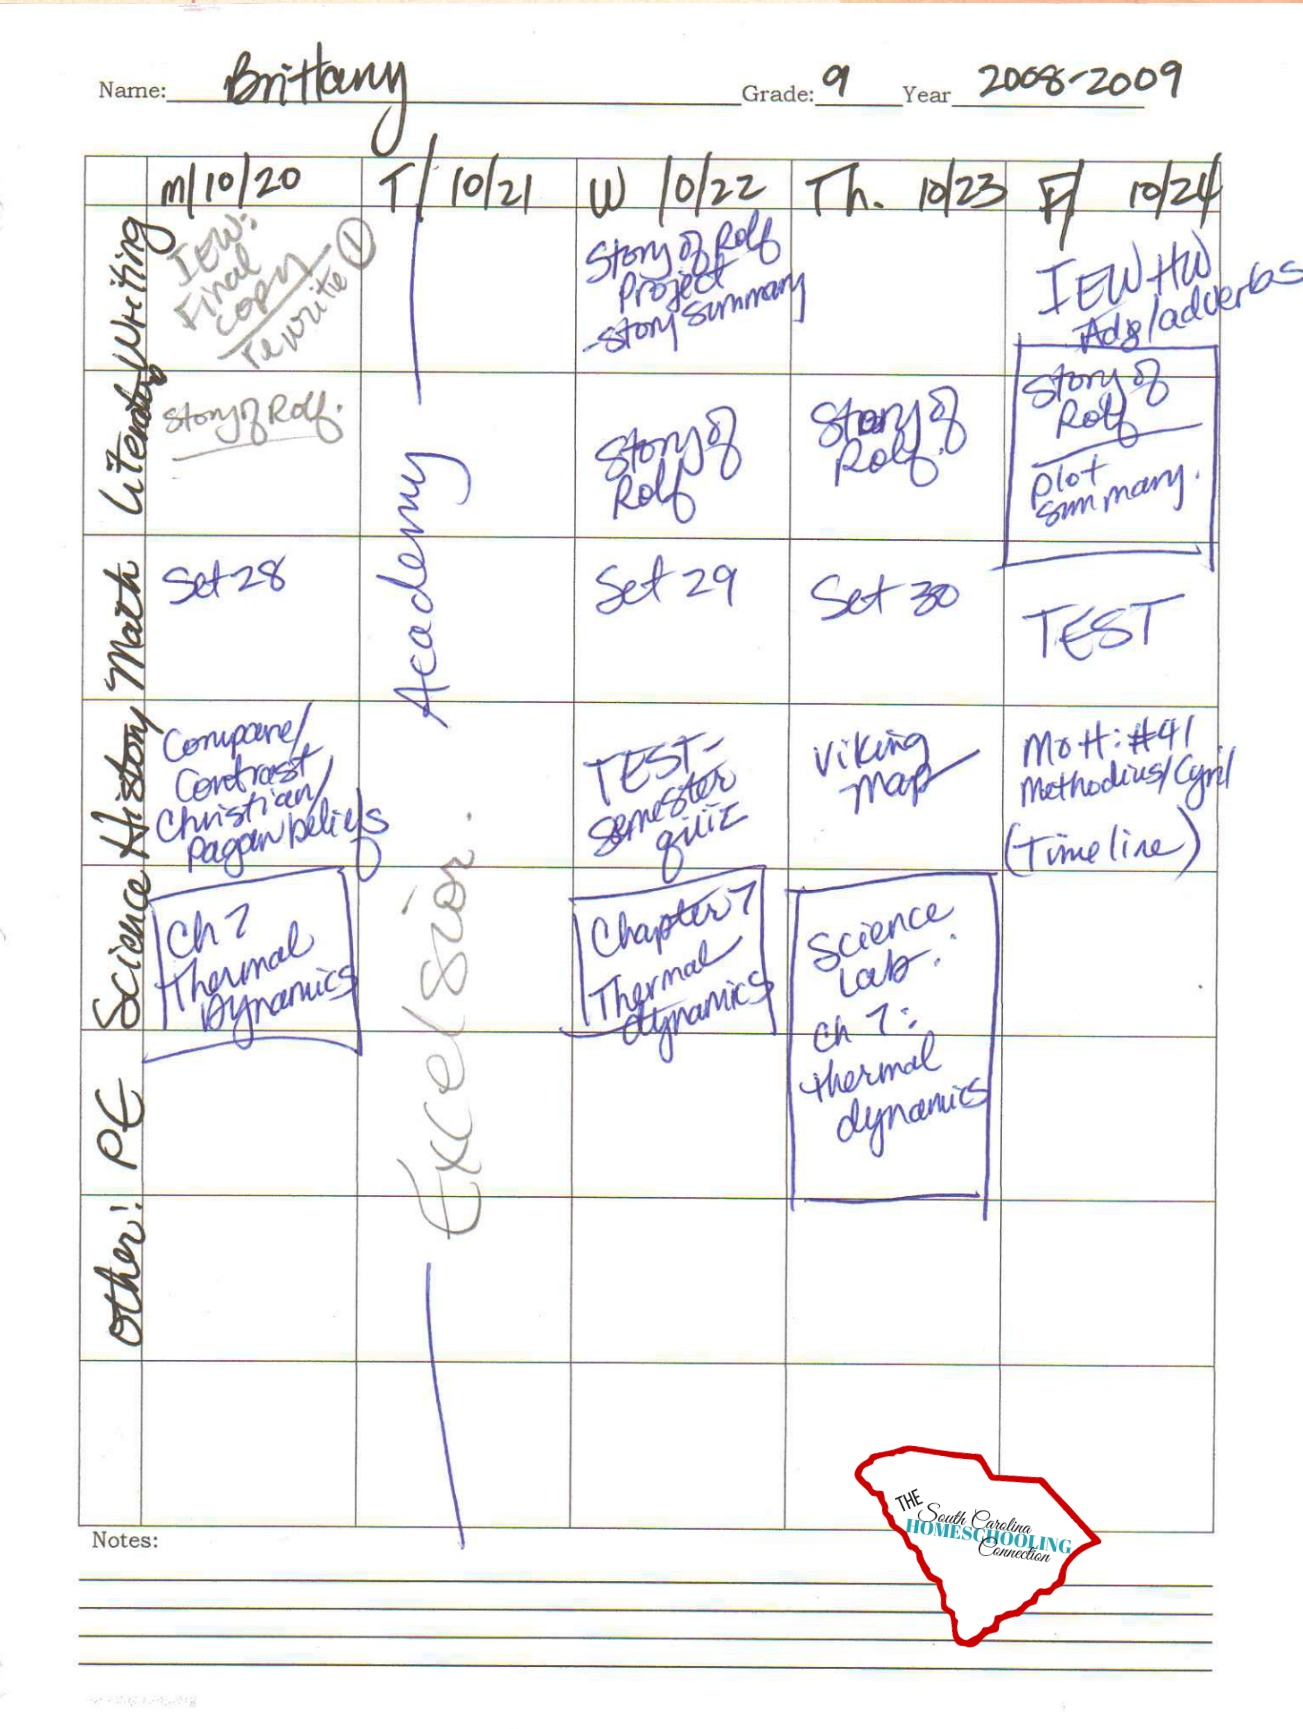 Name: Brittany Grade: 9 Year 2008-2009
M/10/20 T/ 10/21 W 10/22 Th. 10/23 F/ 10/24
Writing
IEW:
Final
copy
rewrite 1
Story of Rolf
Project
-story summary
IEW HW
Adj/adverbs
Literature
Story of Rolf.
Story of
Rolf
Story of
Rolf.
Story of
Rolf
plot
summary.
Math
Set 28
Set 29
Set 30
TEST
History
Compare/
Contrast
Christian/
Pagan beliefs
TEST-
semester
quiz
Viking
map
MOH: #41
Methodius/Cyril
(Timeline)
Science
Ch 7
Thermal
Dynamics
Chapter 7
Thermal
dynamics
Science
Lab:
Ch 7:
thermal
dynamics
PE
Other:
Excelsior. Academy
Notes:
THE
South Carolina
HOMESCHOOLING
Connection